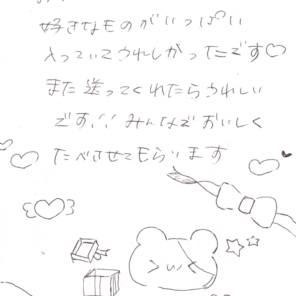 好きなものがいっぱい
入っていてうれしかったです♡
また送ってくれたらうれしい
です!! みんなでおいしく
たべさせてもらいます